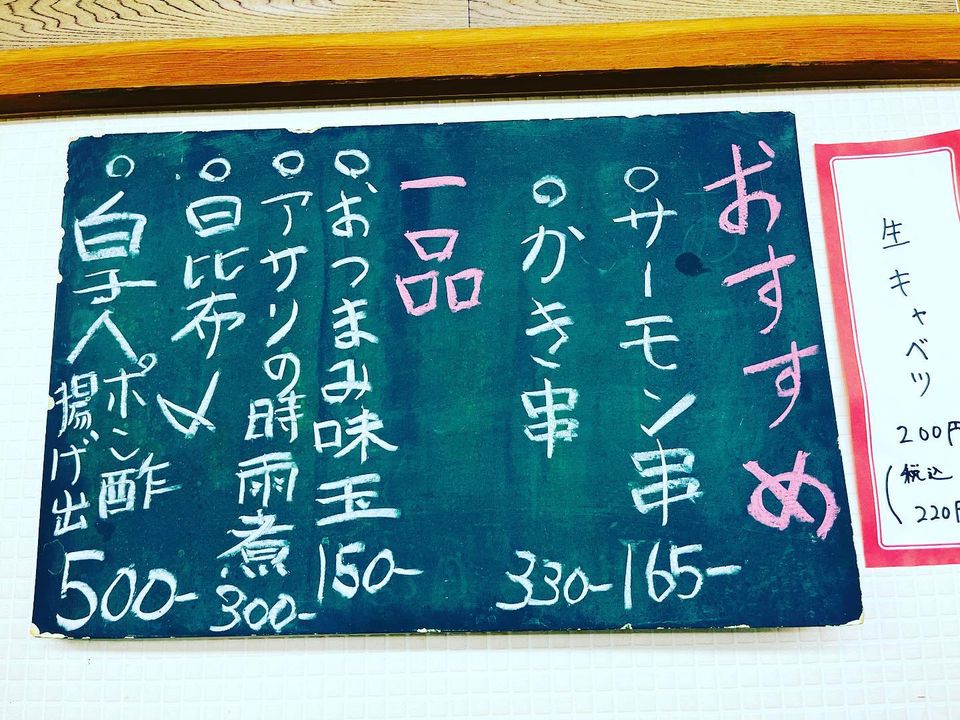 おすすめ
○サーモン串 165-
○かき串 330-
一品
○おつまみ味玉 150-
○アサリの時雨煮 300-
○昆布〆
○白子 ポン酢
揚げ出 500-
生キャベツ
200円
(税込
220円